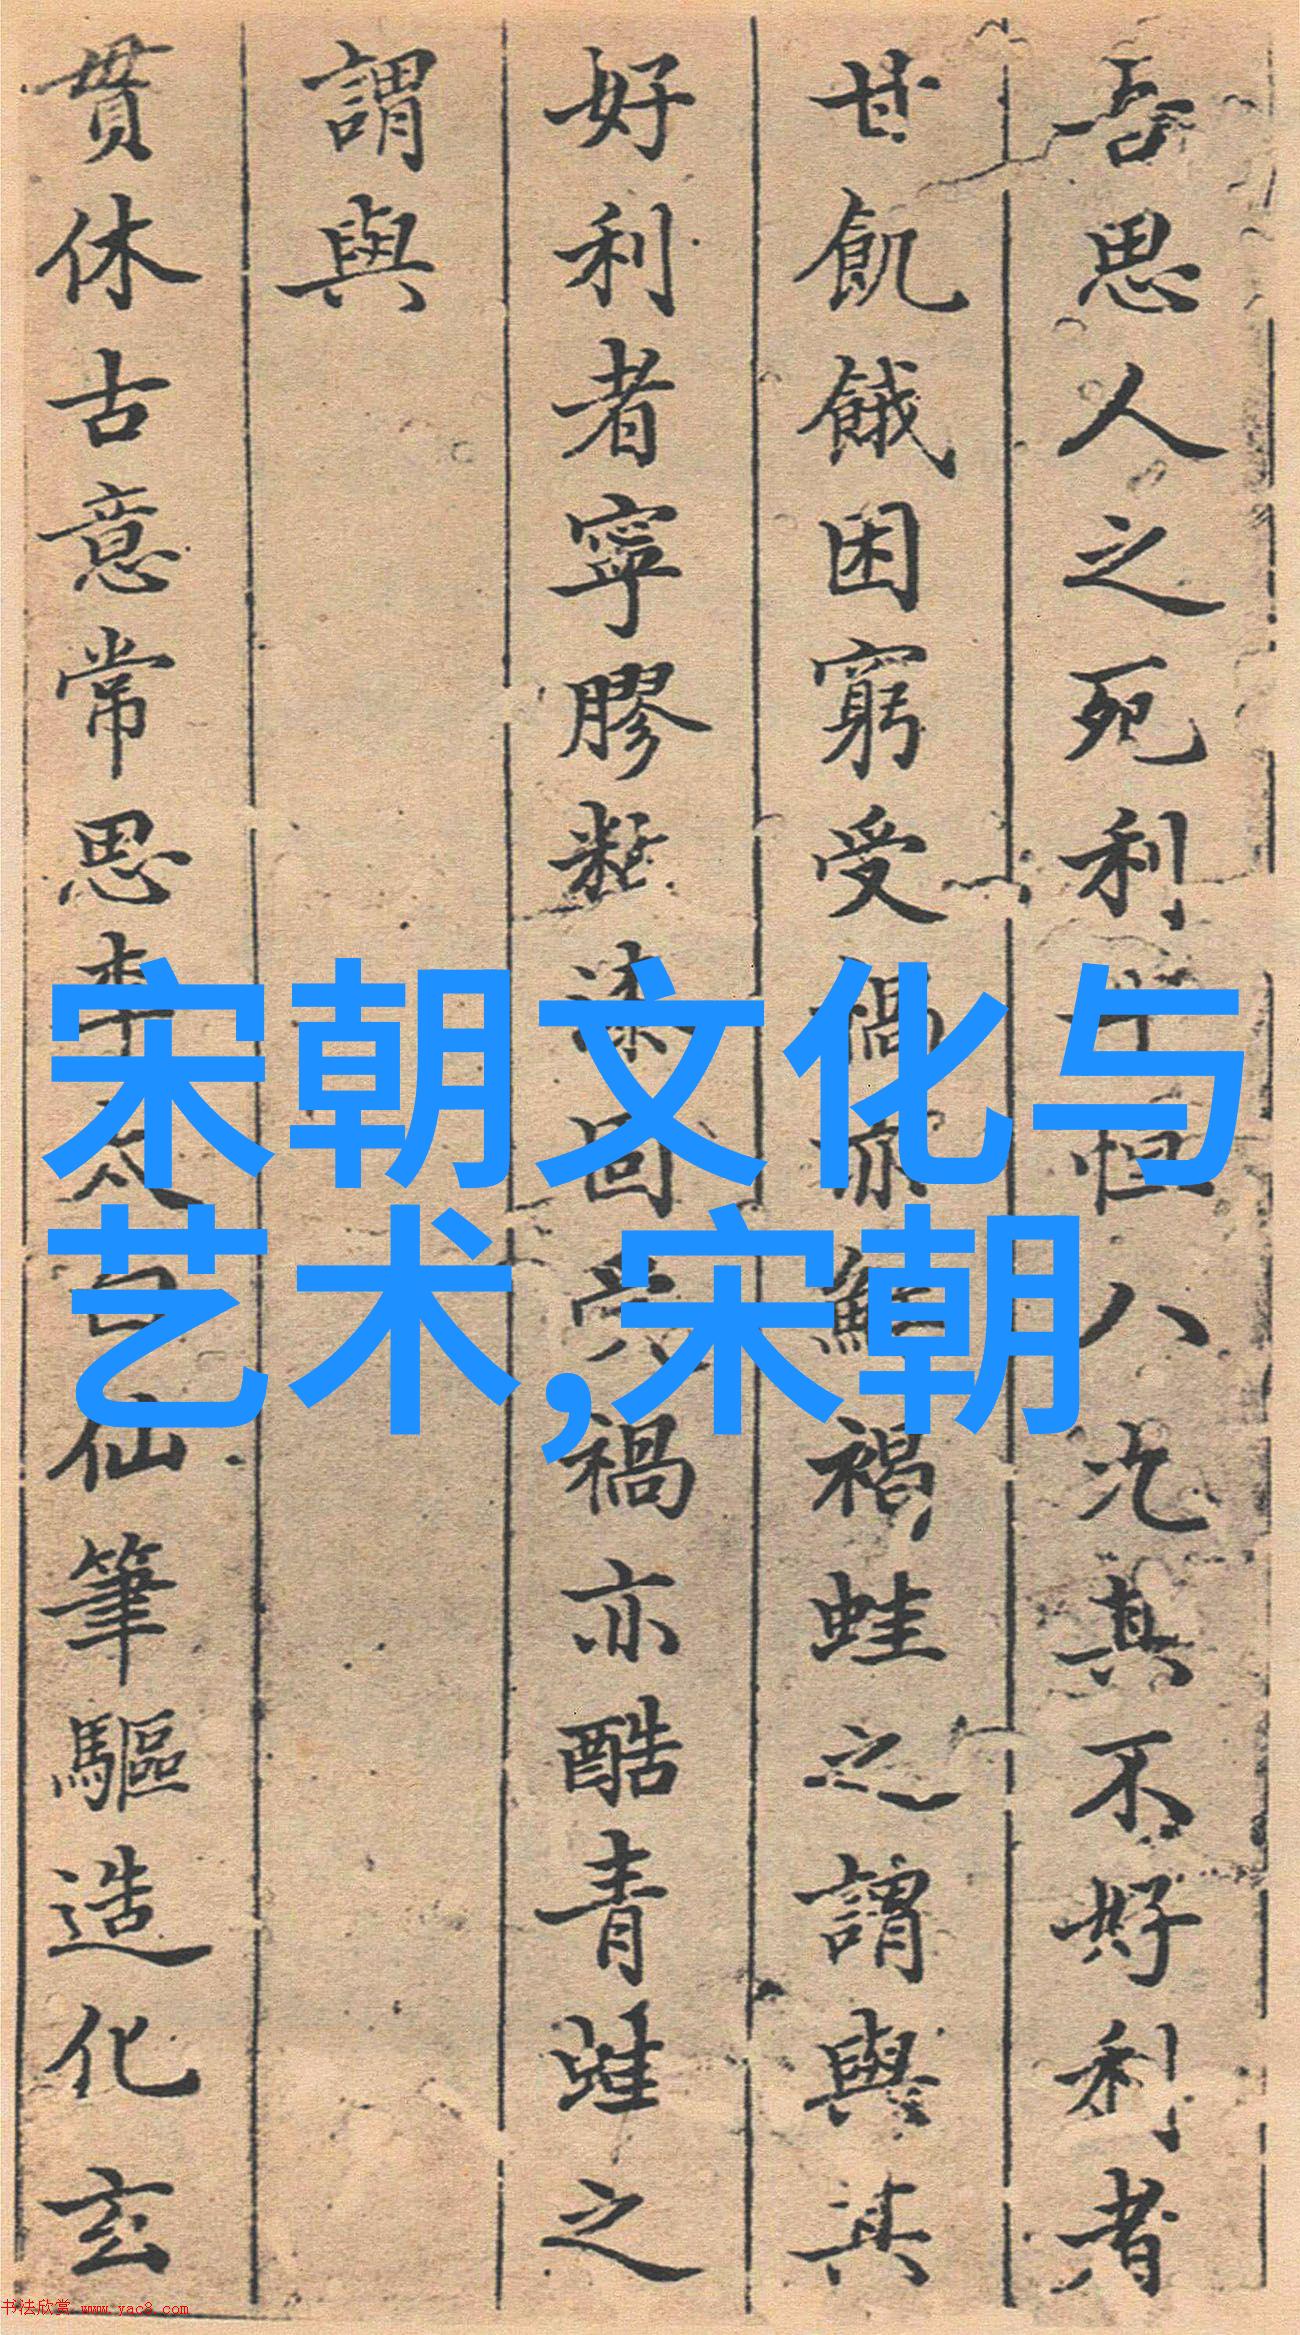 吾思人之死利 恒人 其不好利者
甘飢餓困窮受禍亦 褐蛙之謂與其
好利者寧膠 漆回 禍亦酷青蛙之
謂與
貫休古意常思李太白仙筆驅造化玄
宋朝文化与
艺术,宋朝
书法欣赏 www.yac8.com